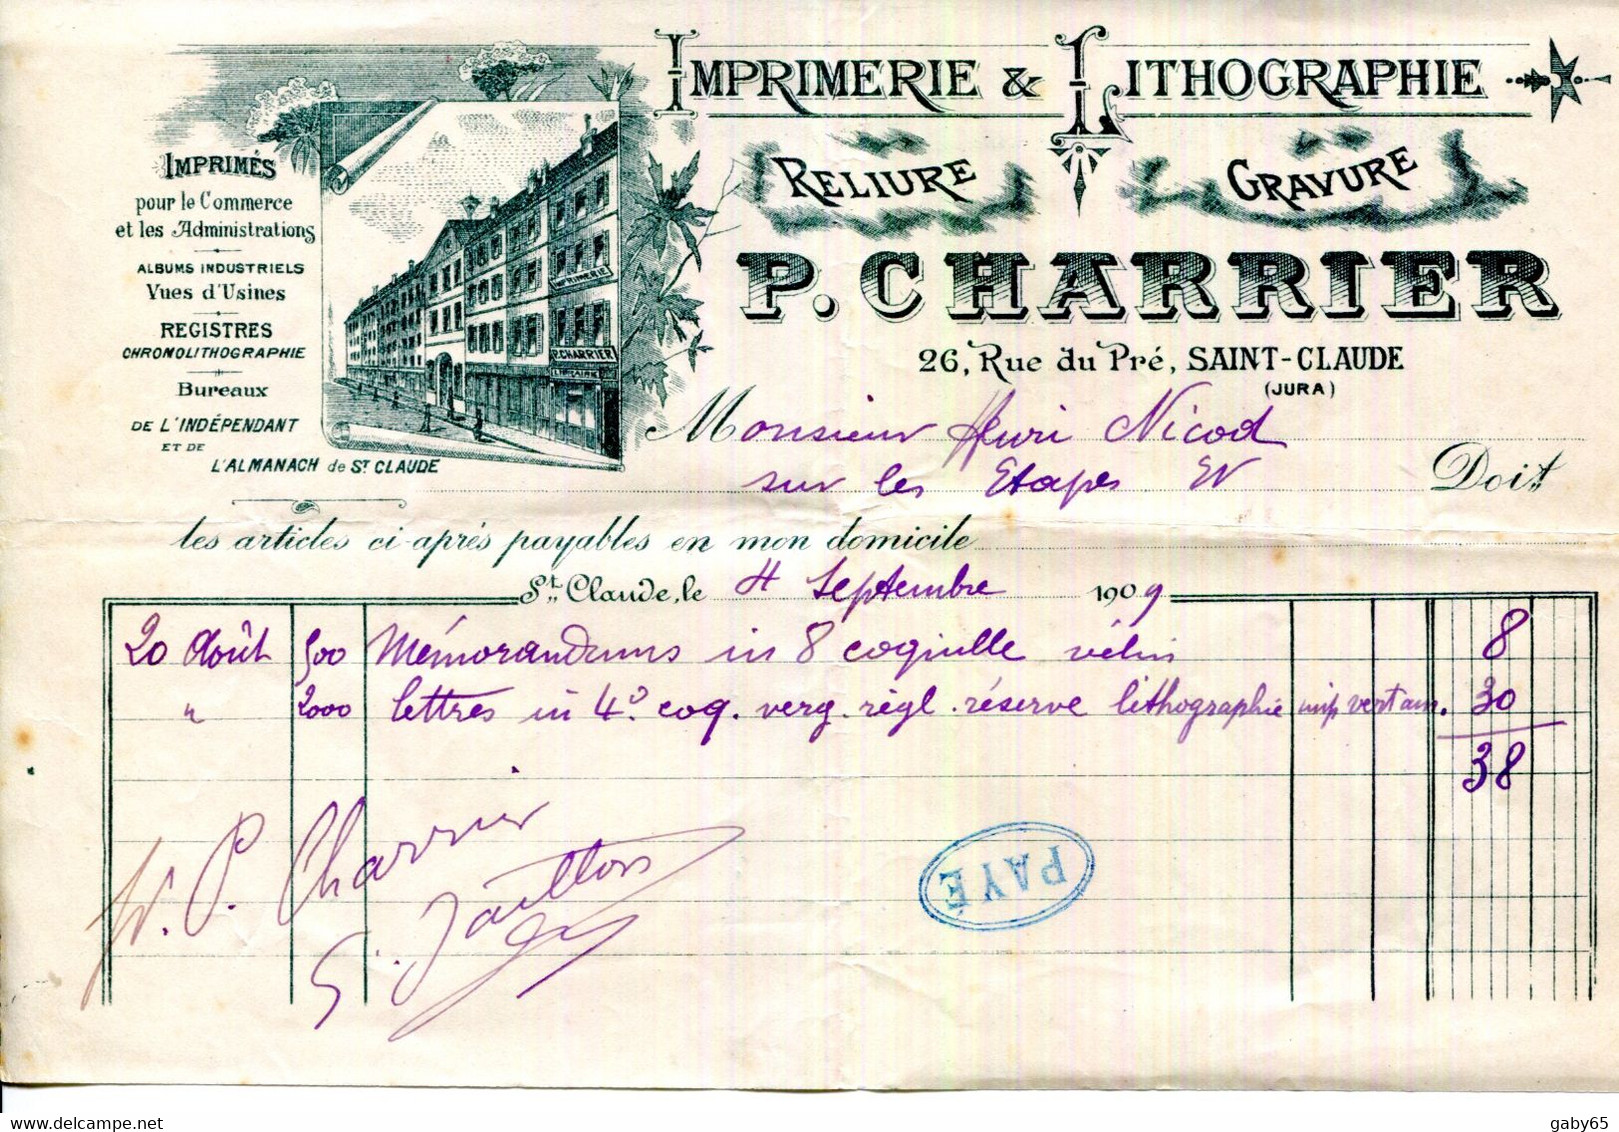 IMPRIMERIE & LITHOGRAPHIE
RELIURE GRAVURE
P. CHARRIER
26, Rue du Pré, SAINT-CLAUDE
(JURA)
IMPRIMÉS
pour le Commerce
et les Administrations
ALBUMS INDUSTRIELS
Vues d'Usines
REGISTRES
CHROMOLITHOGRAPHIE
Bureaux
DE L'INDÉPENDANT
ET DE
L'ALMANACH de ST CLAUDE
IMPRIMERIE
P. CHARRIER
Monsieur Henri Nicod
sur les Etapes EV Doit
les articles ci-après payables en mon domicile
St Claude, le 4 Septembre 1909
20 août 500 Mémorandums in 8 coquille vélin 8
" 2000 lettres in 4° coq. verg. régl. réserve lithographie imp vert am. 30
38
P. Charrier
PAYÉ
delcampe.net
gaby65